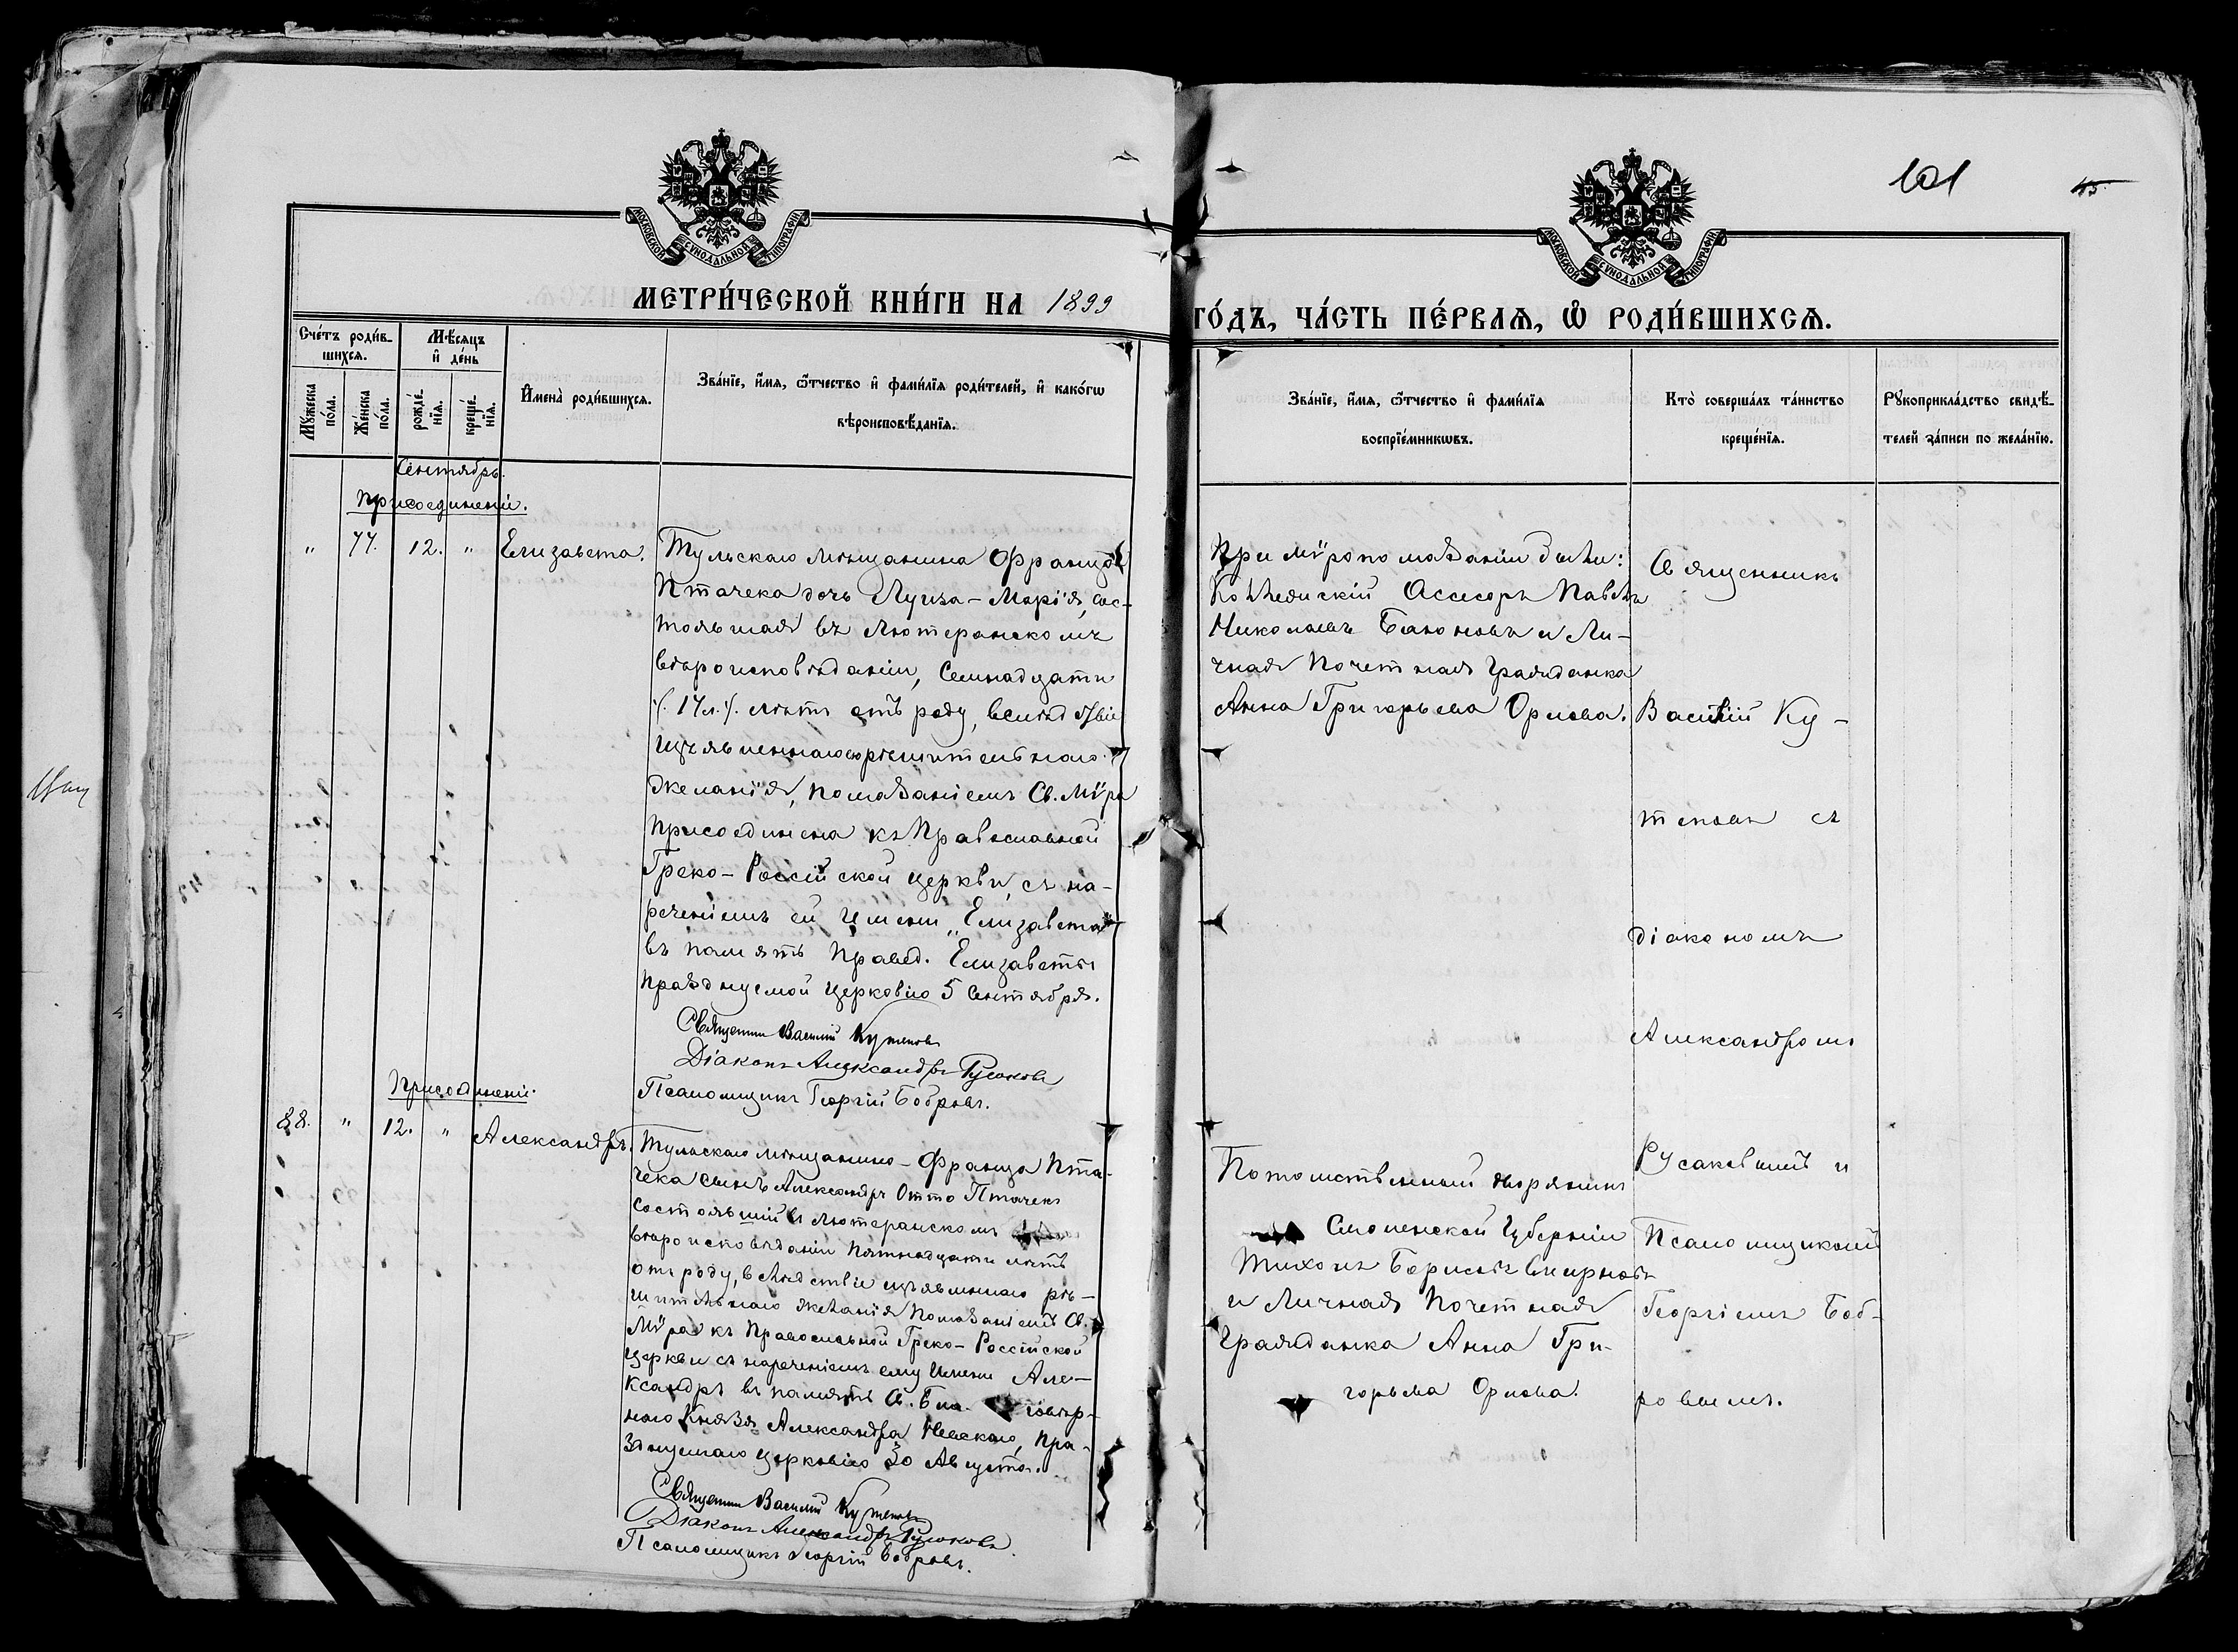 101
45.
МОСКОВСКОЙ СУНОДАЛЬНОЙ ТИПОГРАФІИ
МОСКОВСКОЙ СУНОДАЛЬНОЙ ТИПОГРАФІИ
МЕТРИ́ЧЕСКОЙ КНИ́ГИ НА 1899
ГО́ДЪ, ЧА́СТЬ ПЕ́РВАѦ, Ѽ РОДИ́ВШИХСѦ.
Сче́тъ роди́в-
шихсѧ.
Мѣ́сѧцъ
и҆ де́нь
Мꙋ́жеска по́ла.
Же́нска по́ла.
рожде́-
нїѧ.
креще́-
нїѧ.
И҆мена̀ роди́вшихсѧ.
Зва́нїе, и҆́мѧ, ѻ҆́тчество и҆ фами́лїѧ роди́телей, и҆ како́гѡ
вѣроисповѣ́данїѧ.
Зва́нїе, и҆́мѧ, ѻ҆́тчество и҆ фами́лїѧ
воспрїе́мникѡвъ.
Кто̀ соверша́лъ та́инство
креще́нїѧ.
Рꙋкоприкла́дство свидѣ́-
телей за́писи по жела́нїю.
Сентябрь.
Присоединеніи.
" 77. 12. " Елизавета.
Тульскаго мѣщанина Франца
Птачека дочь Луиза-Марія, сос-
тоявшая въ Лютеранскомъ
вѣроисповѣданіи, семнадцати
/.17л./. лѣтъ отъ роду, вслѣдствіе
изъявленнаго рѣшительнаго
желанія, помазаніемъ Св. Мѵра
присоединена къ Православной
Греко-Россійской церкви, съ на-
реченіемъ ей имени „Елизавета"
въ память Правед. Елизаветы
празднуемой церковію 5 Сентября.
Священник Василий Кутеповъ
Діаконъ Александръ Русаковъ
Псаломщикъ Георгій Бобровъ.
При мѵропомазаніи были:
Коллежскій Ассесоръ Павелъ
Николаевъ и Ли-
чная почетная гражданка
Анна Григорьева Орлова.
Священникъ
Василій Ку-
теповъ съ
діакономъ
Александромъ
Русаковымъ и
Псаломщикомъ
Георгіемъ Боб-
ровымъ.
Присоединеніи.
88. " 12. " Александръ.
Тульскаго мѣщанина-Франца Пта-
чека сынъ Александръ Отто Птачекъ
состоявшій въ Лютеранскомъ
вѣроисповѣданіи пятнадцати лѣтъ
отъ роду, вслѣдствіе изъявленнаго рѣ-
шительнаго желанія помазаніемъ Св.
Мѵра къ Православной Греко-Россійской
церкви съ нареченіемъ ему имени Але-
ксандръ въ память Св. Бла- говѣр-
наго Князя Александра Невскаго, пра-
зднуемаго церковію 30 Августа.
Священник Василий Кутеповъ
Діаконъ Александръ Русаковъ
Псаломщикъ Георгій Бобровъ.
Потомственный дворянинъ
Смоленской губерніи
Тихонъ Борисовъ Смирновъ
и Личная почетная
гражданка Анна Гри-
горьева Орлова.